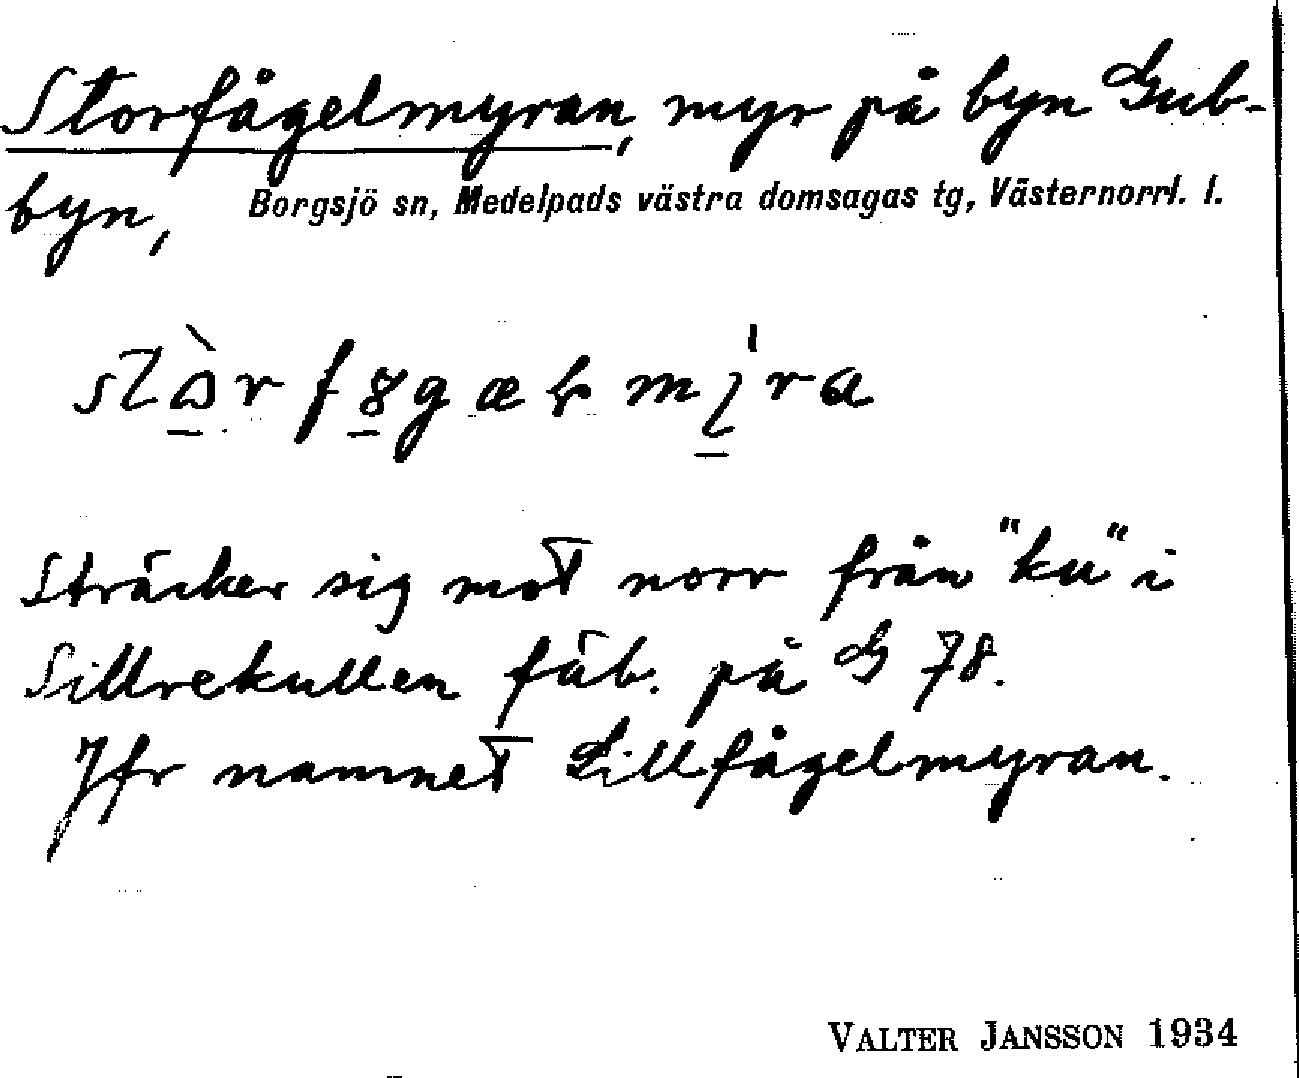 Storfågelmyran, myr på byn Gub-
byn, Borgsjö sn, Medelpads västra domsagas tg, Västernorrl. l.
Sträcker sig mot norr från "ku" i
Sillrekullen fäb. på G 78.
Jfr namnet Lillfågelmyran.
VALTER JANSSON 1934